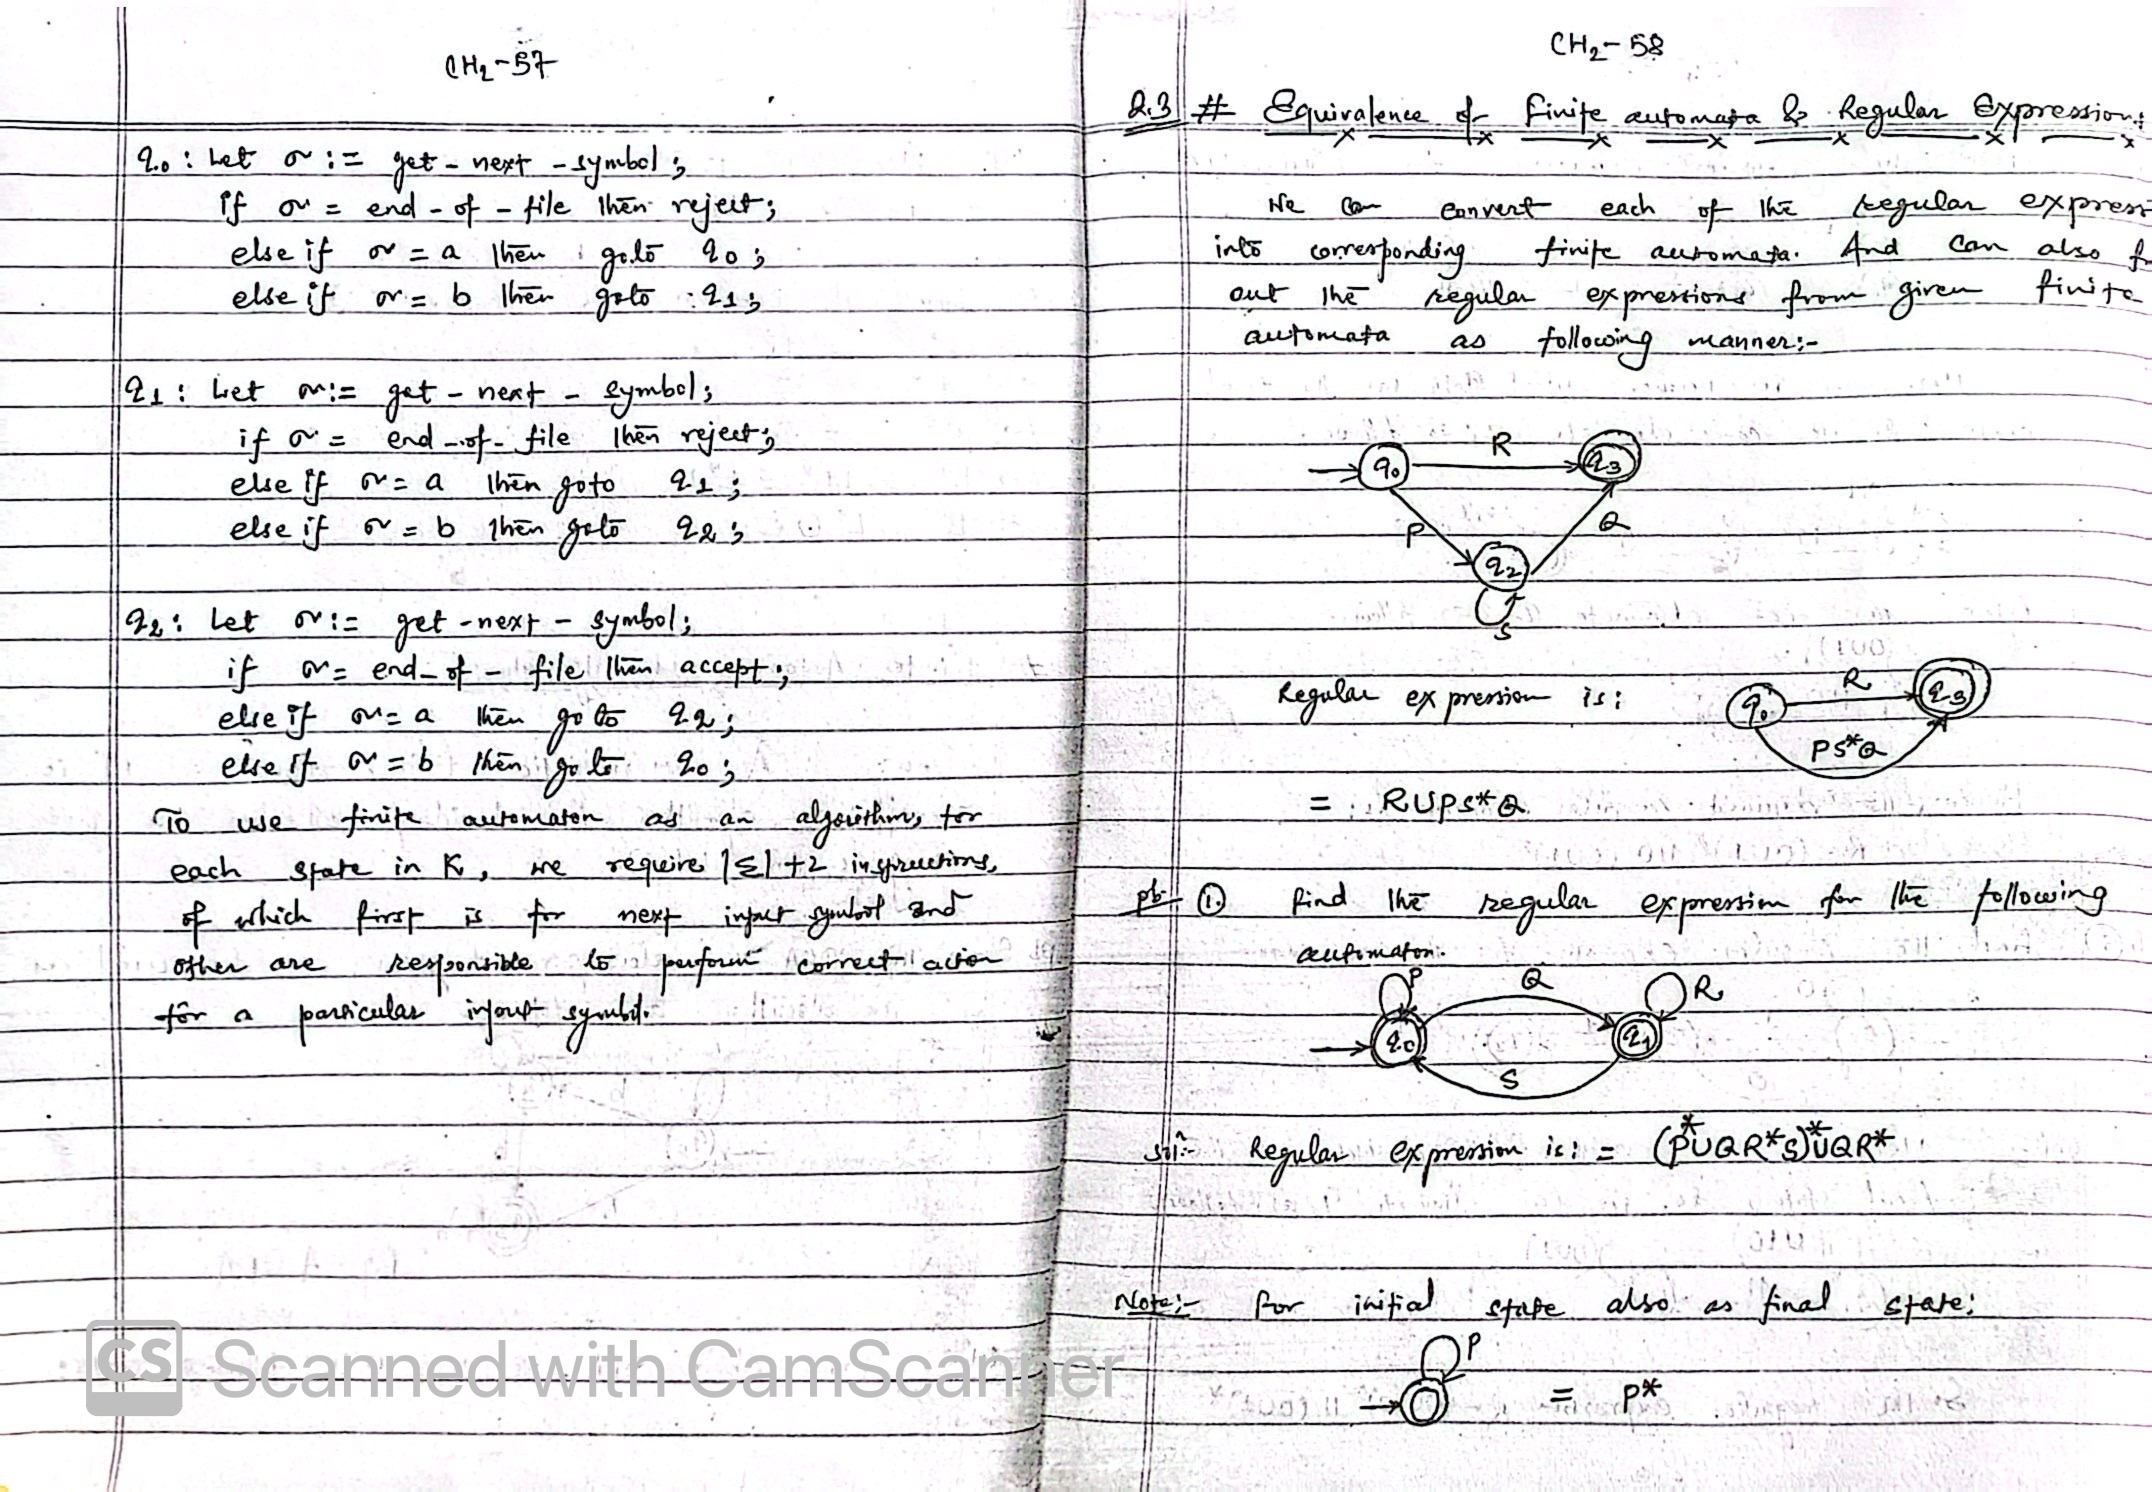 CH2-57
q0 : Let σ := get - next - symbol;
if σ = end - of - file then reject;
else if σ = a then goto q0;
else if σ = b then goto q1;
q1 : Let σ := get - next - symbol;
if σ = end - of - file then reject;
else if σ = a then goto q1;
else if σ = b then goto q2;
q2 : Let σ := get - next - symbol;
if σ = end - of - file then accept;
else if σ = a then go to q2;
else if σ = b then go to q0;
To use finite automaton as an algorithm, for
each state in K, we require |Σ| +2 instructions,
of which first is for next input symbol and
other are responsible to perform correct action
for a particular input symbol.
CH2-58
2.3 # Equivalence of finite automata & Regular Expression:
We can convert each of the regular express
into corresponding finite automata. And can also f
out the regular expressions from given finite
automata as following manner:-
q0 R q3
P Q
q2
S
Regular expression is: q0 R q3
PS*Q
= RUPS*Q
pb- ①. find the regular expression for the following
automaton.
P Q R
q0 q1
S
soln:- Regular expression is: = (P*UQR*S)*UQR*
Note:- for initial state also as final state:
P
= P*
CS Scanned with CamScanner